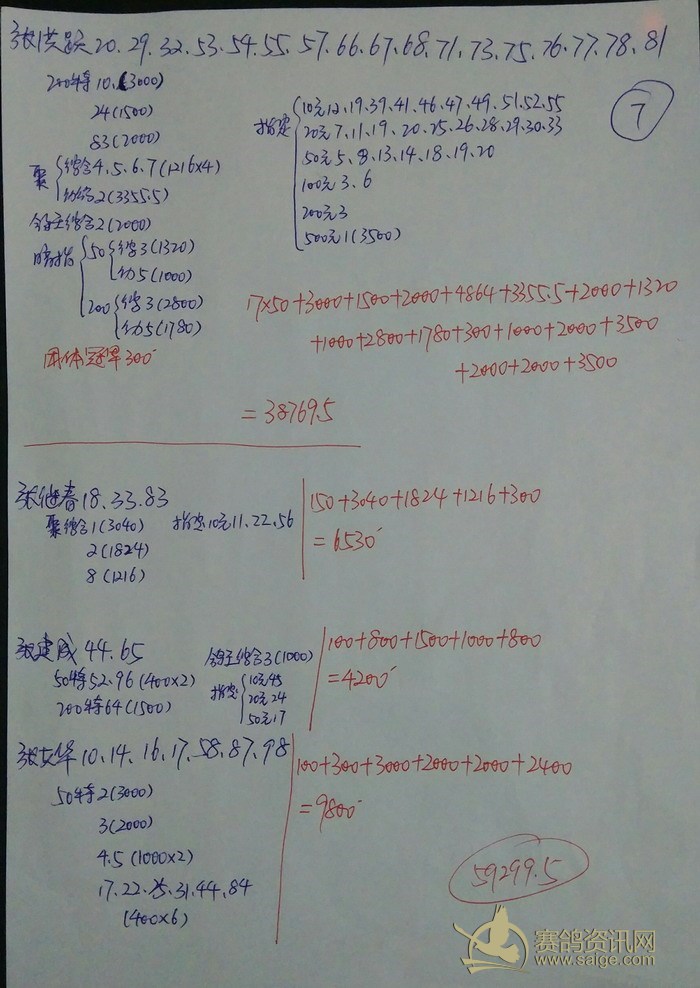 张洪跃 20.29.32.53.54.55.57.66.67.68.71.73.75.76.77.78.81
200特10.(3000)
24(1500)
83(2000)
聚 综合4.5.6.7(1216×4)
2(3355.5)
鸽王综合2(2000)
50 综3(1320)
幼5(1000)
200 综3(2800)
幼5(1780)
团体冠军300
指定 10元12.19.39.41.46.47.49.51.52.55
20元7.11.19.20.25.26.28.29.30.33
50元5.8.13.14.18.19.20
100元3.6
200元3
500元1(3500)
7
17×50+3000+1500+2000+4864+3355.5+2000+1320
+1000+2800+1780+300+1000+2000+3500
+2000+2000+3500
=38769.5
张继春18.33.83
聚综合1(3040) 指定10元11.22.56
2(1824)
8(1216)
150+3040+1824+1216+300
=6530
张建成44.65
50特52.96(400×2)
200特64(1500)
鸽王综合3(1000)
指定 10元45
20元24
50元17
100+800+1500+1000+800
=4200
张文华10.14.16.17.58.87.98
50特2(3000)
3(2000)
4.5(1000×2)
17.22.25.31.44.84
(400×6)
100+300+3000+2000+2000+2400
=9800
59299.5
赛鸽资讯网
www.saige.com